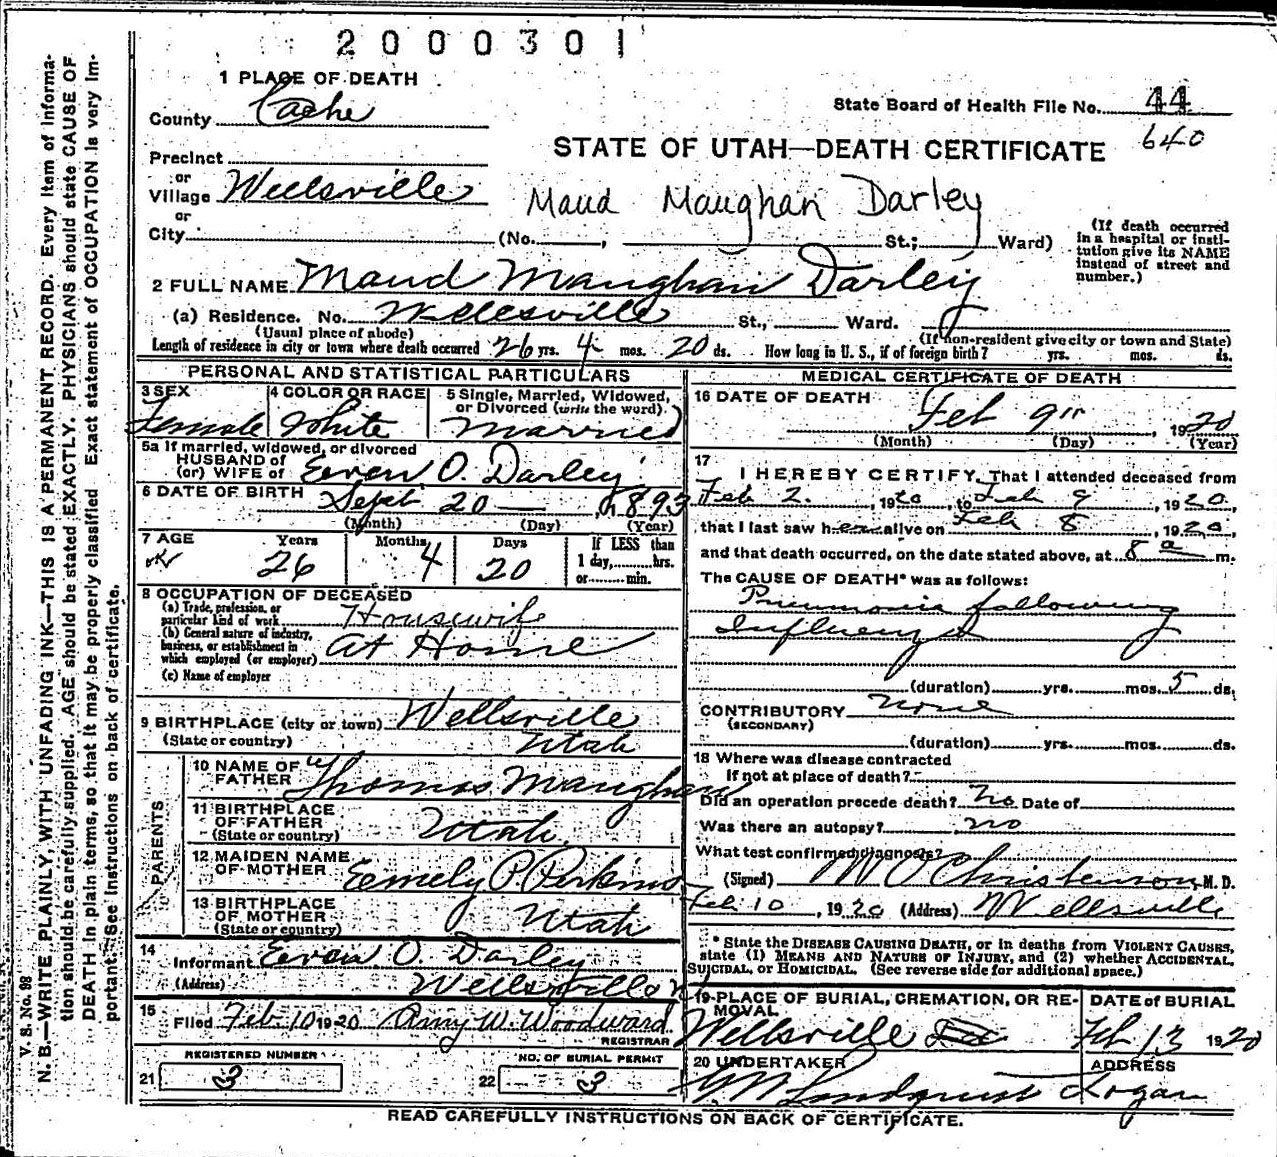 2000301
1 PLACE OF DEATH
County Cache
State Board of Health File No. 44
640
STATE OF UTAH—DEATH CERTIFICATE
Precinct
or
Village Wellsville
Maud Maughan Darley
or
City (No. , St.; Ward)
(If death occurred in a hospital or insti-
tution give its NAME
instead of street and
number.)
2 FULL NAME Maud Maughan Darley
(a) Residence. No. Wellsville St., Ward.
(Usual place of abode) (If non-resident give city or town and State)
Length of residence in city or town where death occurred 26 yrs. 4 mos. 20 ds. How long in U. S., if of foreign birth? yrs. mos. ds.
PERSONAL AND STATISTICAL PARTICULARS
3 SEX 4 COLOR OR RACE 5 Single, Married, Widowed,
or Divorced (write the word)
Female White Married
5a If married, widowed, or divorced
HUSBAND of
(or) WIFE of O. Darley
6 DATE OF BIRTH Sept 20 — , 1893
(Month) (Day) (Year)
7 AGE Years Months Days If LESS than
1 day, hrs.
or min.
26 4 20
8 OCCUPATION OF DECEASED
(a) Trade, profession, or
particular kind of work Housewife
(b) General nature of industry,
business, or establishment in
which employed (or employer) At Home
(c) Name of employer
9 BIRTHPLACE (city or town) Wellsville
(State or country) Utah
PARENTS
10 NAME OF
FATHER Thomas Maughan
11 BIRTHPLACE
OF FATHER
(State or country) Utah
12 MAIDEN NAME
OF MOTHER Emely P. Perkins
13 BIRTHPLACE
OF MOTHER
(State or country) Utah
14
Informant O. Darley
(Address) Wellsville
15
Filed Feb. 10 1920 Amy W. Woodward
REGISTRAR
REGISTERED NUMBER NO. OF BURIAL PERMIT
21 3 22 3
MEDICAL CERTIFICATE OF DEATH
16 DATE OF DEATH Feb 9" , 1920
(Month) (Day) (Year)
17
I HEREBY CERTIFY, That I attended deceased from
Feb 2. , 1920, to Feb 9 , 1920,
that I last saw her alive on Feb 8 , 1920,
and that death occurred, on the date stated above, at 8 a m.
The CAUSE OF DEATH* was as follows:
Pneumonia following
Influenza
(duration) yrs. mos. 5 ds.
CONTRIBUTORY None
(SECONDARY)
(duration) yrs. mos. ds.
18 Where was disease contracted
If not at place of death?
Did an operation precede death? No Date of
Was there an autopsy? no
What test confirmed diagnosis?
(Signed) W O Christenson, M. D.
Feb 10 , 1920 (Address) Wellsville
* State the DISEASE CAUSING DEATH, or in deaths from VIOLENT CAUSES,
state (1) MEANS AND NATURE OF INJURY, and (2) whether ACCIDENTAL,
SUICIDAL, or HOMICIDAL. (See reverse side for additional space.)
19 PLACE OF BURIAL, CREMATION, OR RE-
MOVAL DATE of BURIAL
Wellsville Feb 13 1920
20 UNDERTAKER ADDRESS
Lindquist Logan
READ CAREFULLY INSTRUCTIONS ON BACK OF CERTIFICATE.
V. S. No. 98
N. B.—WRITE PLAINLY, WITH UNFADING INK—THIS IS A PERMANENT RECORD. Every item of informa-
tion should be carefully supplied. AGE should be stated EXACTLY. PHYSICIANS should state CAUSE OF
DEATH in plain terms, so that it may be properly classified. Exact statement of OCCUPATION is very im-
portant. See instructions on back of certificate.